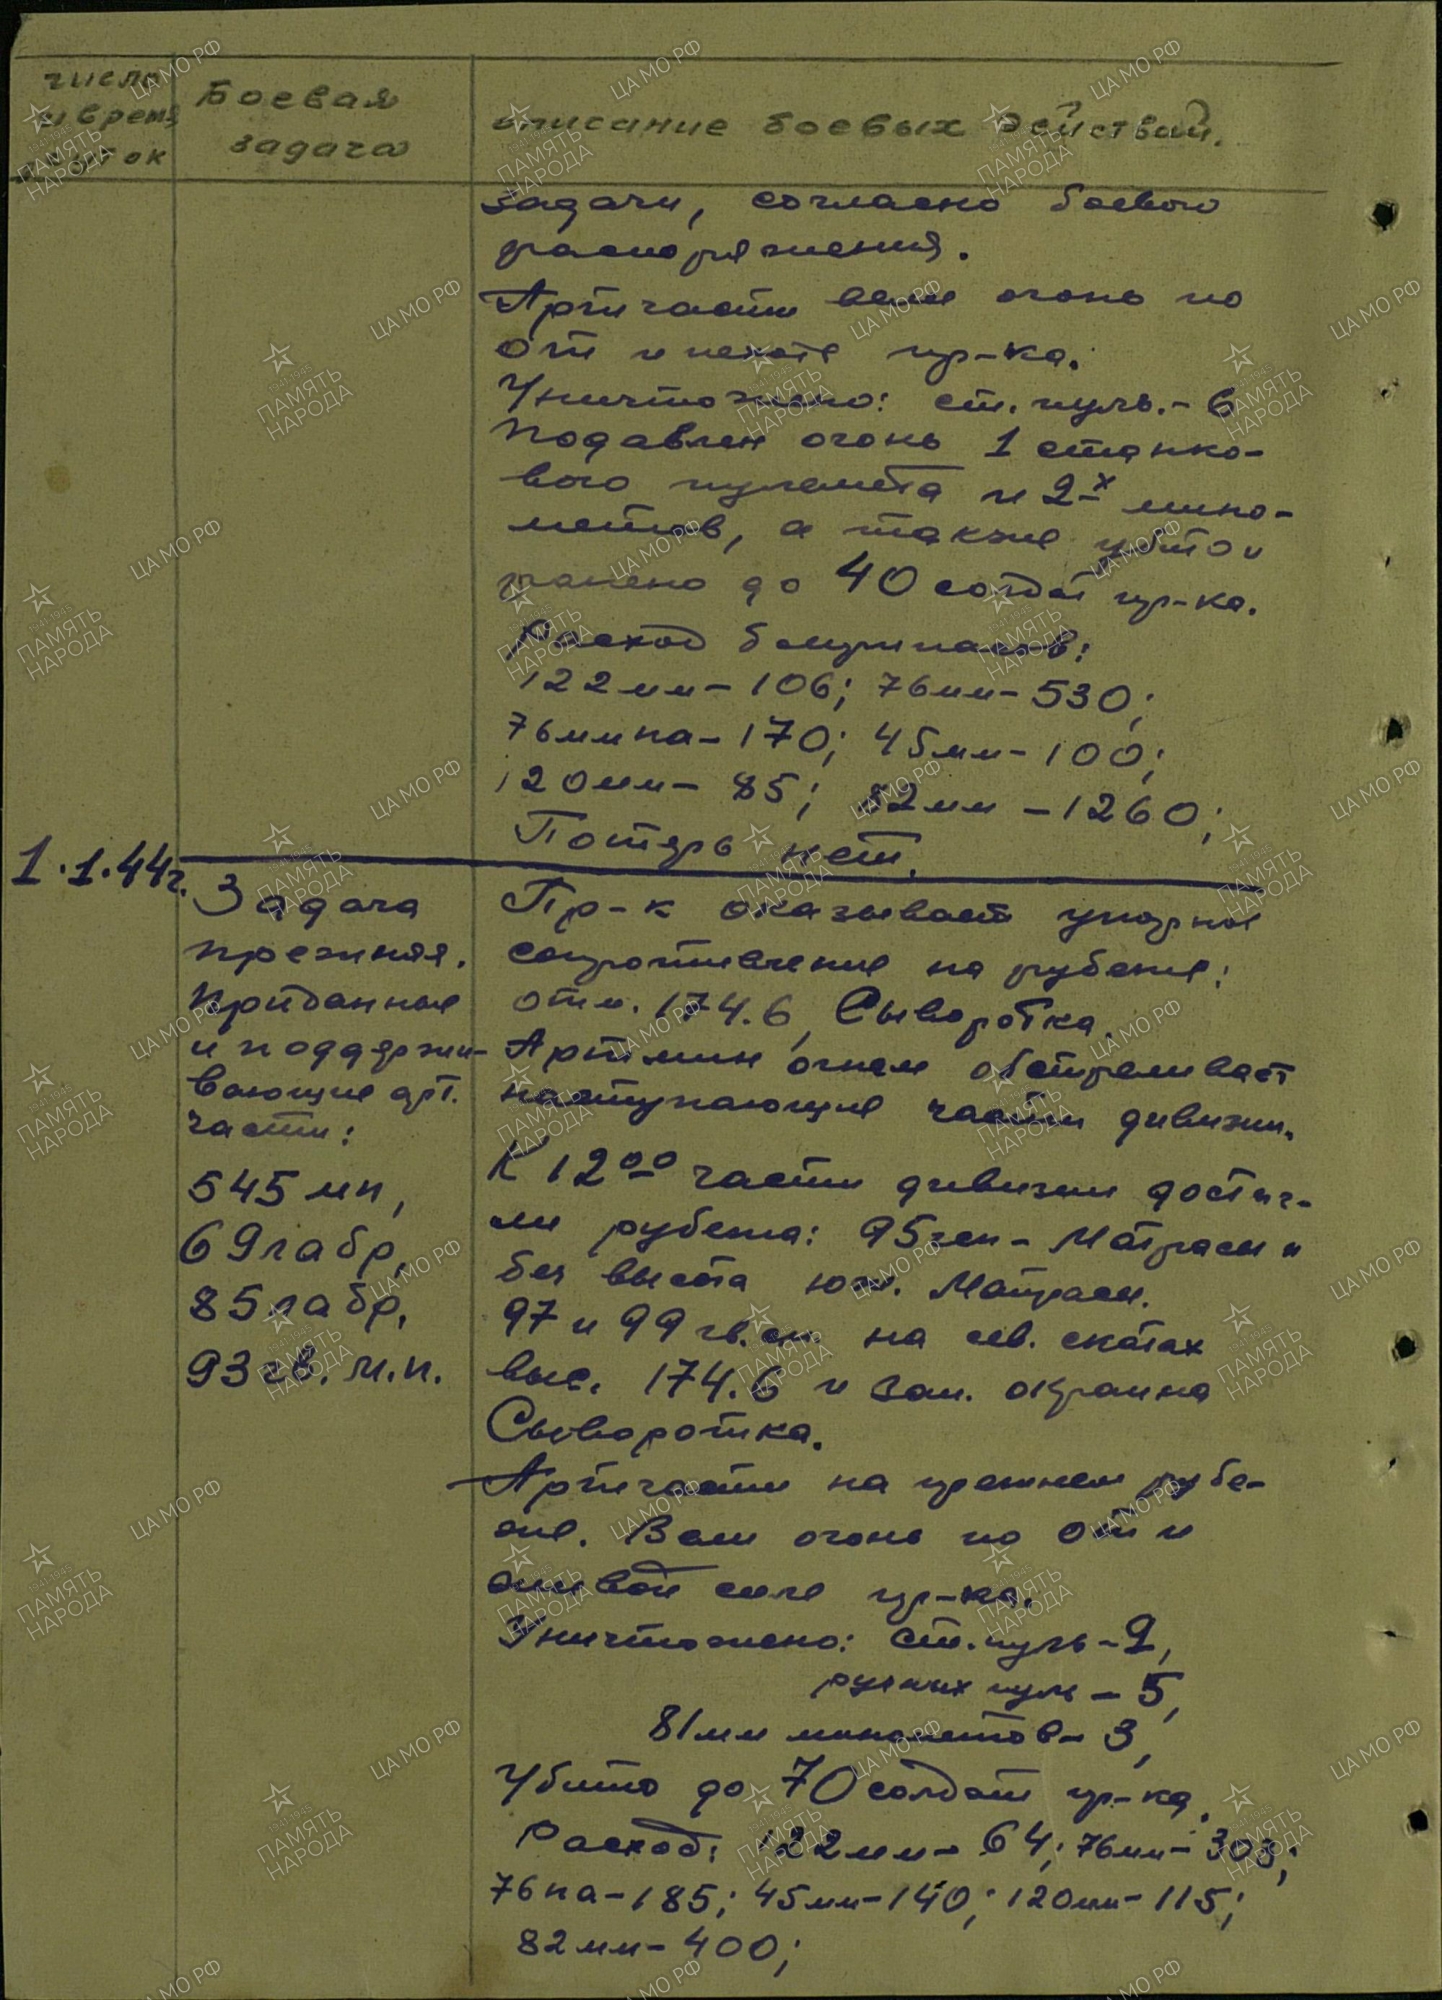 число
и время
суток
Боевая
задача
описание боевых действий.
задачи, согласно боевого
распоряжения.
Артчасти вели огонь по
От и пехоте пр-ка.
Уничтожено: ст. пуль. - 6
подавлен огонь 1 станко-
вого пулемета и 2-х мино-
метов, а также убито и
ранено до 40 солдат пр-ка.
Расход боеприпасов:
122 мм - 106; 76 мм - 530;
76 мм па - 170; 45 мм - 100;
120 мм - 85; 82 мм - 1260;
Потерь нет.
1.1.44 г.
Задача
прежняя.
Приданные
и поддержи-
вающие арт.
части:
545 мп,
69 лабр,
85 лабр,
93 гв. м.п.
Пр-к оказывает упорное
сопротивление на рубеже:
отм. 174.6, Сыворотка.
Артмин огнем обстреливает
наступающие части дивизии.
К 12 00 части дивизии достиг-
ли рубежа: 95 гсп - Матрасы и
без высота юж. Матрасы.
97 и 99 гв. сп. на сев. скатах
выс. 174.6 и зап. окраина
Сыворотка.
Артчасти на прежнем рубе-
же. Вели огонь по От и
живой силе пр-ка.
Уничтожено: ст. пуль - 9,
ручных пуль - 5,
81 мм минометов - 3,
Убито до 70 солдат пр-ка.
Расход: 122 мм - 64; 76 мм - 303;
76 па - 185; 45 мм - 140; 120 мм - 115;
82 мм - 400;